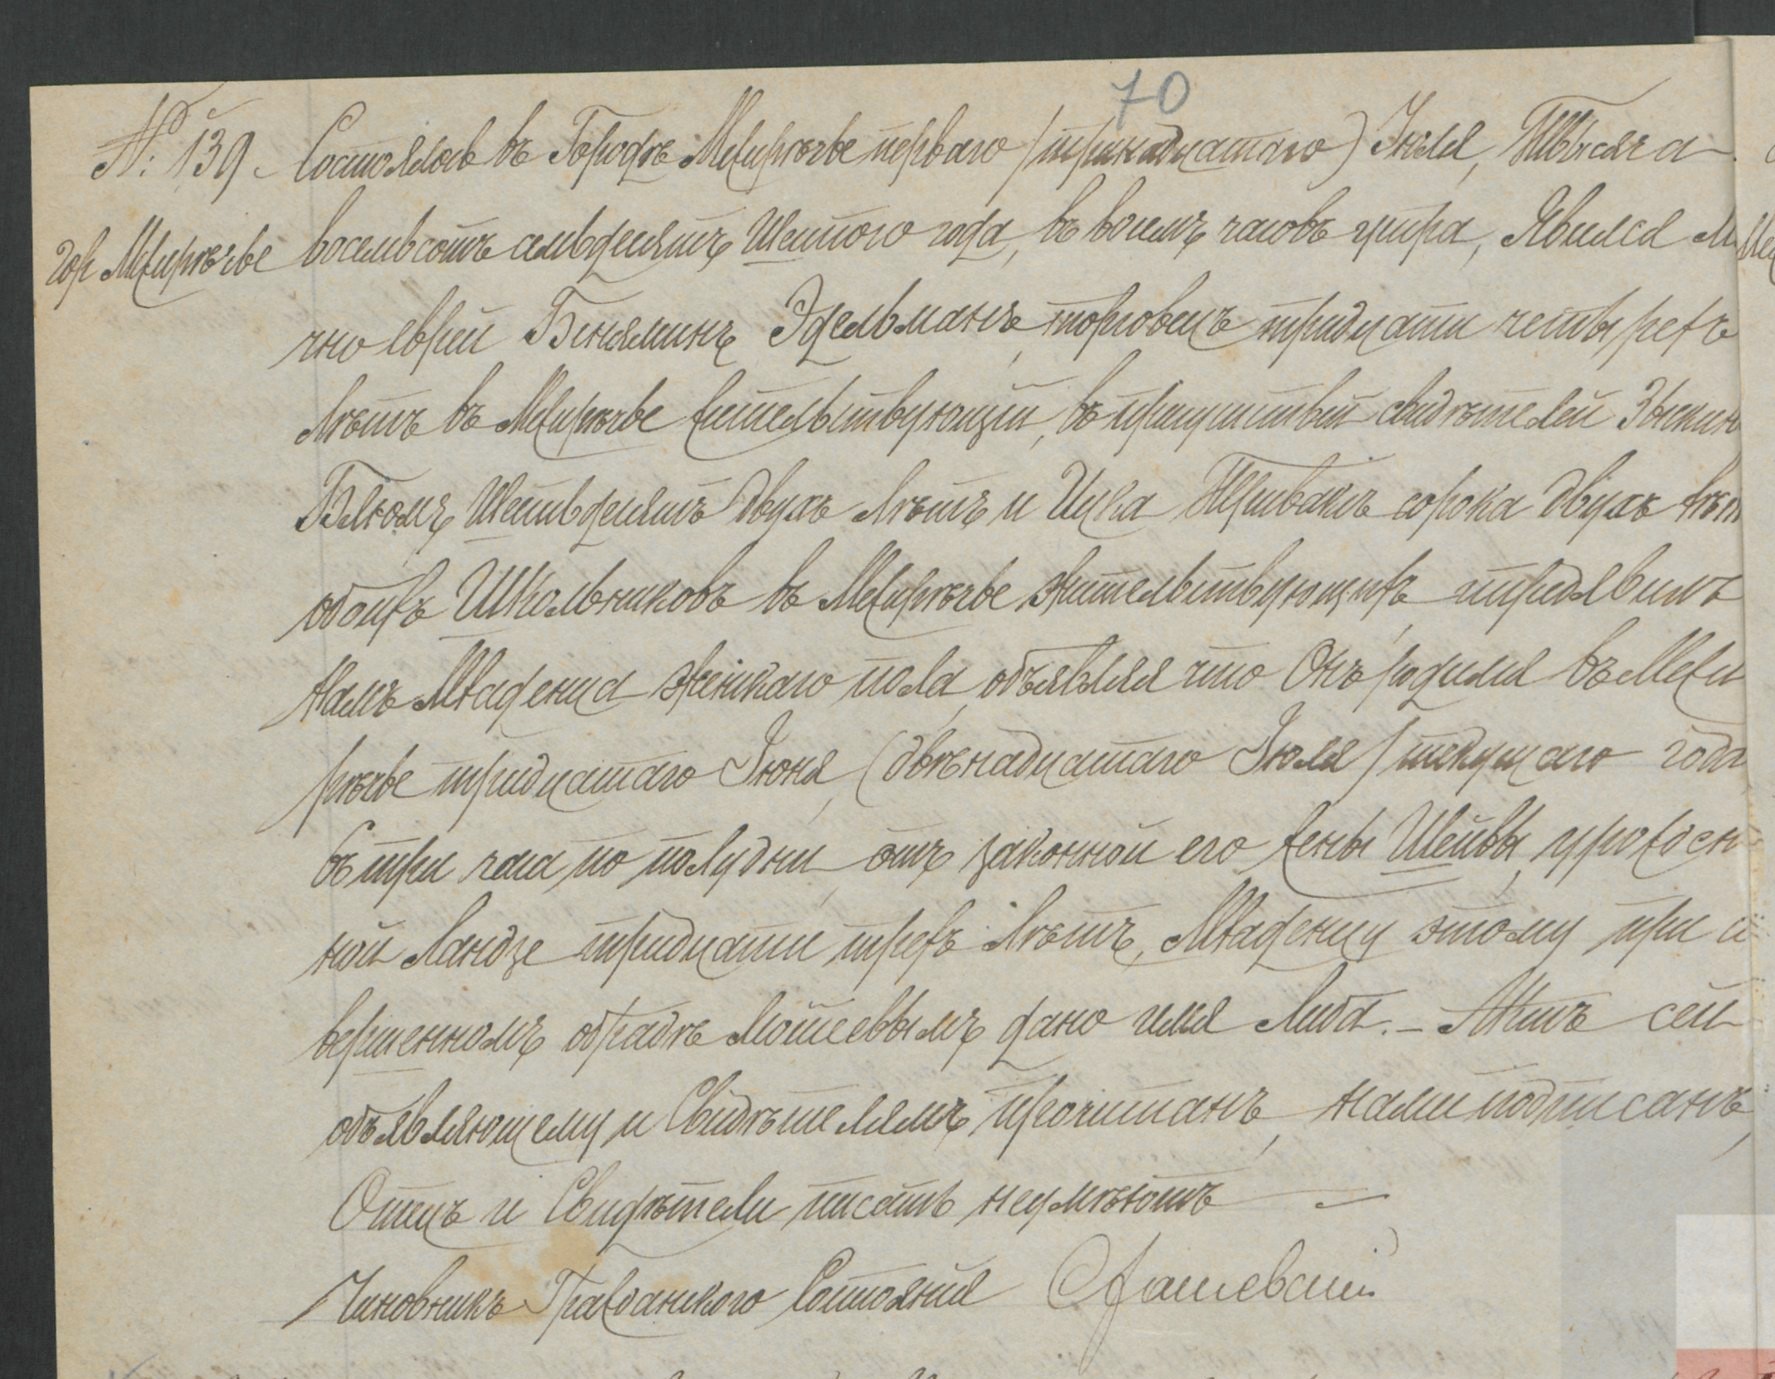 70
№ 139. Состоялось въ Городѣ Межирѣчье перваго (тринадцатаго) Іюля, Тысяча
гор Межирѣчье восемьсотъ семьдесятъ Шестого года, въ восемь часовъ утра, Явился ли
чно еврей Беняминъ Эдельманъ, торговецъ тридцати четырехъ
лѣтъ въ Межирѣчье жительствующій, въ присутствіи свидѣтелей Зыскинъ
Блюмъ Шестьдесятъ двухъ лѣтъ и Ицка сорока двухъ лѣтъ
обоихъ Школьниковъ въ Межирѣчье жительствующихъ, предявилъ
намъ Младенца женскаго пола, объявляя что Онъ родился въ Межи
рѣчье тридцатаго Іюня, (двѣнадцатаго Іюля) текущаго года
въ три часа по полудни отъ законной его жены Шейвы, урожден
ной Ландзе тридцати трехъ лѣтъ, Младенцу этому при со
вершенномъ обрадѣ Мойсеевымъ дано имя Либа. – Актъ сей
объявляющему и Свидѣтелямъ прочитанъ, нами подписанъ,
Отецъ и Свидѣтели писать неумѣютъ —
Чиновникъ Гражданского Состоянія